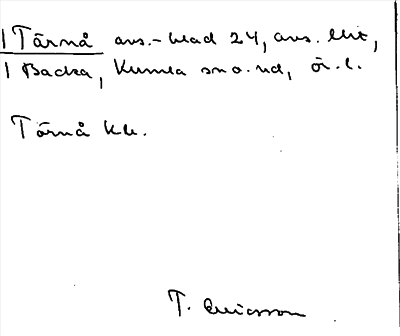 | Tärnå avs.-blad 24, avs. Mit,
| Backa, Kumla sn o. hd, ör. l.
Törnå kb.
T. Ericsson